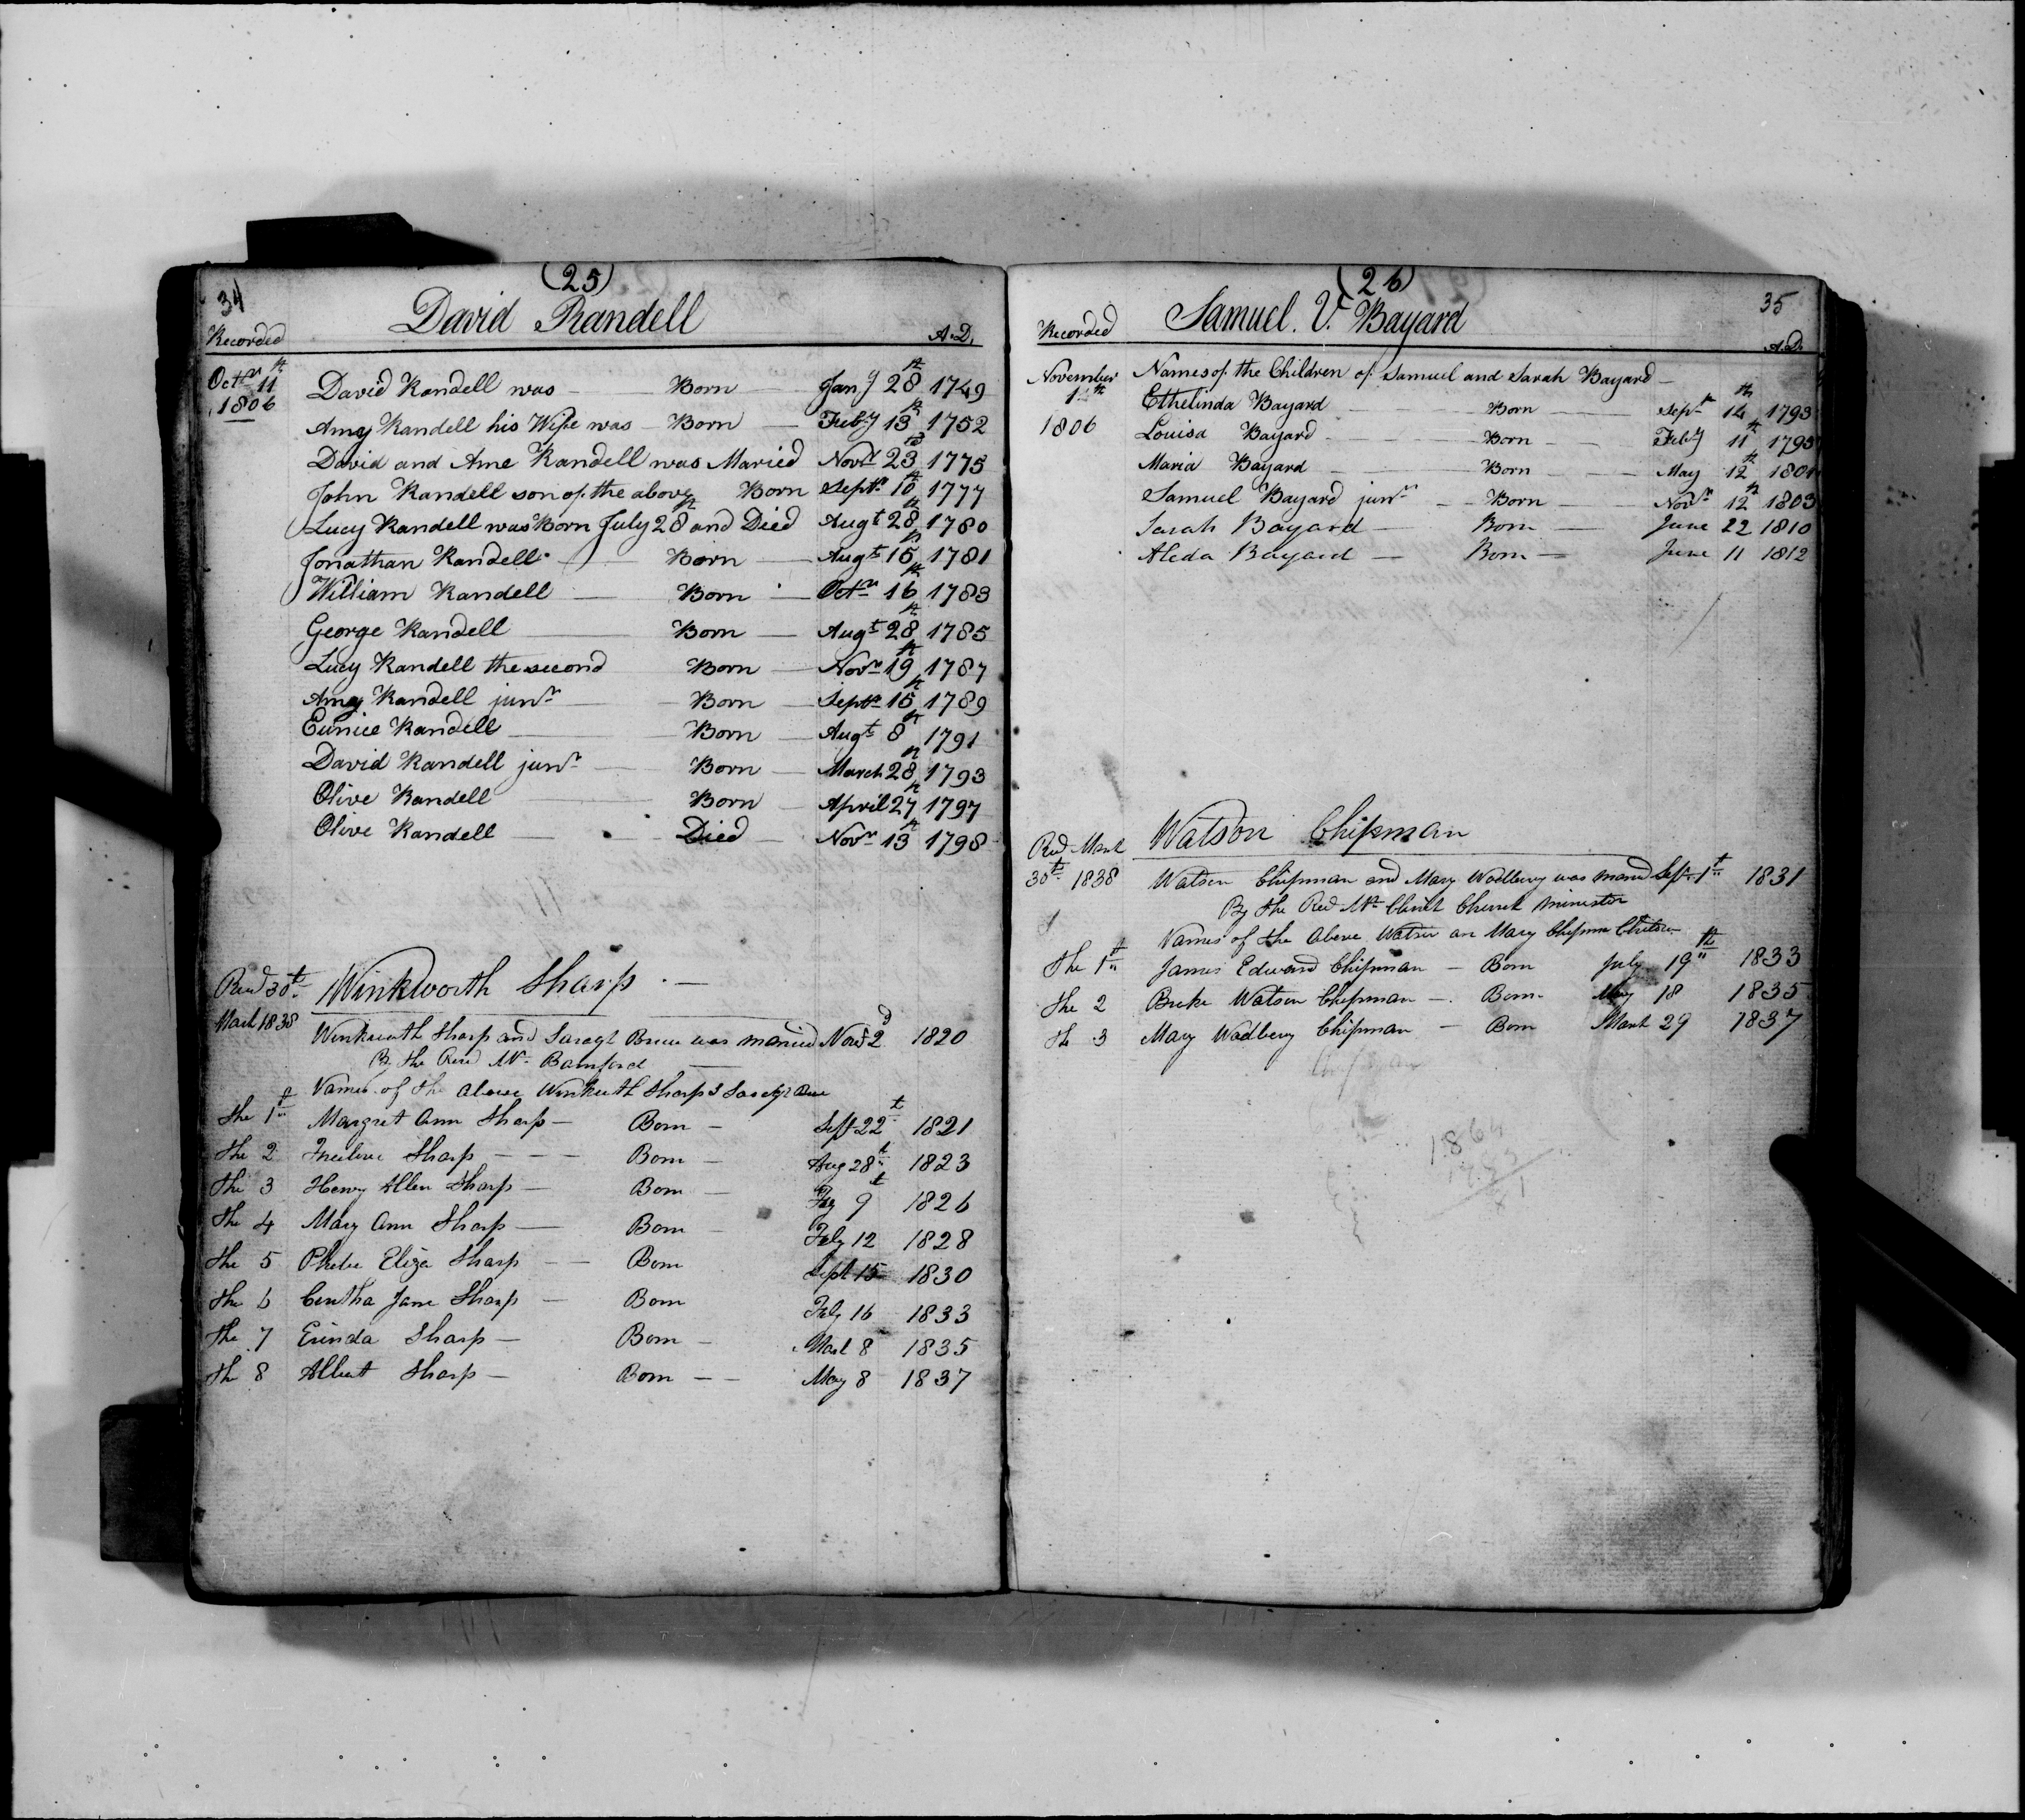 34
(25)
David Randell
Recorded A.D.
Octr 11th 1806
David Randell was — Born — Jany 28th 1749
Amy Randell his Wife was — Born — Feby 13th 1752
David and Ame Randell was Maried Novr 23rd 1775
John Randell son of the above Born Septr 10th 1777
Lucy Randell was Born July 28th and Died Augt 28th 1780
Jonathan Randell — Born — Augt 15th 1781
William Randell — Born — Octr 16th 1783
George Randell — Born — Augt 28th 1785
Lucy Randell the second Born — Novr 19th 1787
Amy Randell junr — Born — Septr 15th 1789
Eunice Randell — Born — Augt 8th 1791
David Randell junr — Born — March 28th 1793
Olive Randell — Born — April 27th 1797
Olive Randell — Died — Novr 13th 1798
Recd 30t March 1838
Winkworth Sharp —
Winkworth Sharp and was maried Novr 2d 1820
By the Revd Mr Bamford —
Names of the above Winkworth Sharp &
The 1st Margret Ann Sharp — Born — Sept 22t 1821
The 2 Sharp — Born — Aug 28t 1823
The 3 Henry Allen Sharp — Born — 9t 1826
The 4 Mary Ann Sharp — Born — Feby 12 1828
The 5 Phebe Eliza Sharp — Born Sept 15 1830
The 6 Jane Sharp — Born Feby 16 1833
The 7 Erinda Sharp — Born — Mach 8 1835
The 8 Albert Sharp — Born — May 8 1837
(26)
35
Samuel. V. Bayard
Recorded A.D.
November 1806
Names of the Children of Samuel and Sarah Bayard —
Ethelinda Bayard — Born — Sepr 14th 1793
Louisa Bayard — Born — Feby 11th 1795
Maria Bayard — Born — May 12th 1801
Samuel Bayard junr — Born — Novr 12th 1803
Sarah Bayard — Born — June 22 1810
Aleda Bayard — Born — June 11 1812
Recd March 30t 1838
Watson Chipman
Watson Chipman and Mary Wodbery was maried Sept 1st 1831
By the Revd Mr Church minister
Names of the Above Watson an Mary Chipman Children
The 1st James Edward Chipman — Born July 19th 1833
The 2 Watson Chipman — Born May 18 1835
The 3 Mary Wodbery Chipman — Born March 29 1837
1864